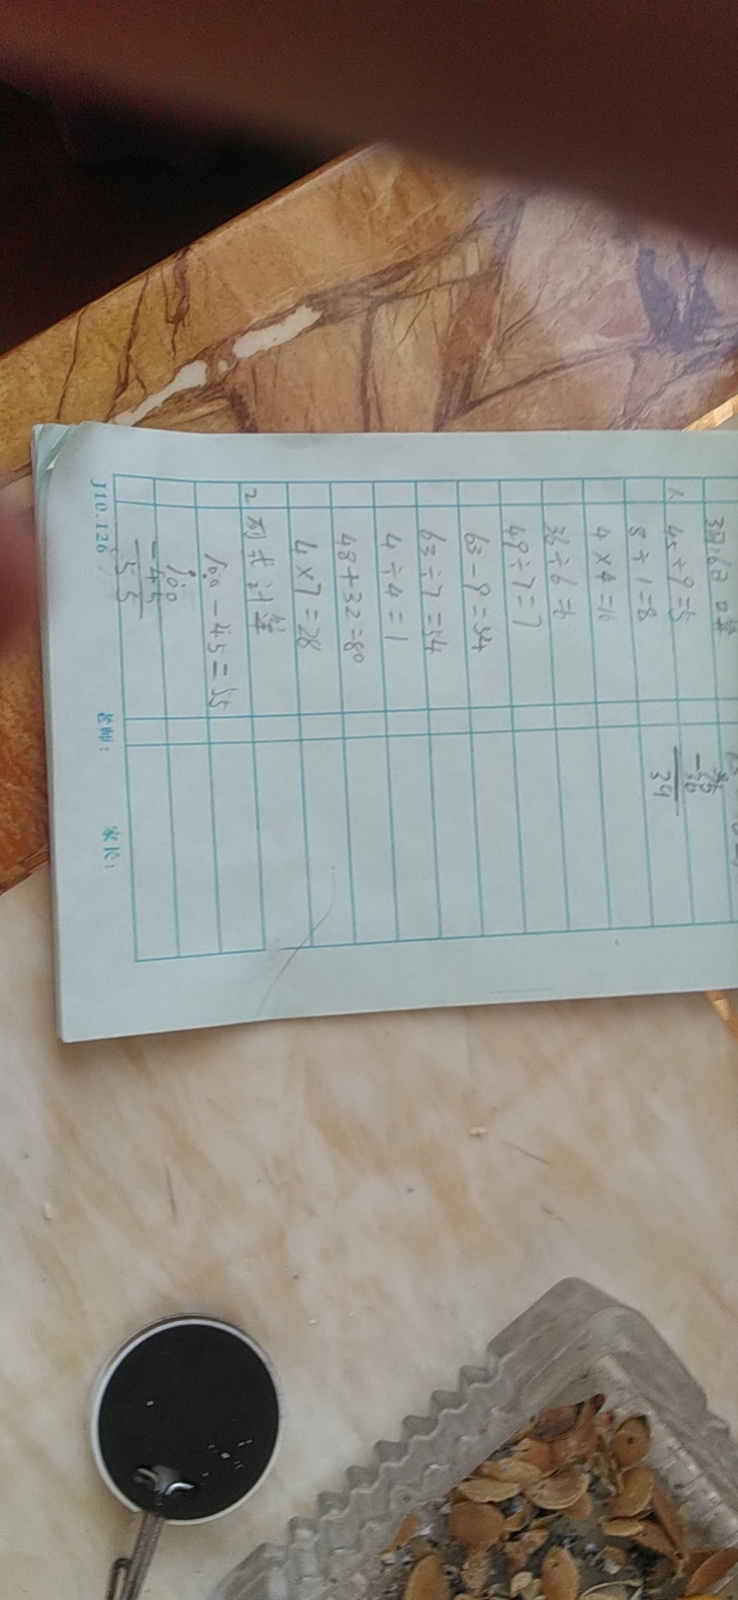 3月16日 口算
1. 45÷9=5
8÷1=8
4×4=16
36÷6=6
49÷7=7
63-9=54
63÷7=54
4÷4=1
48+32=80
4×7=28
2 列式计算
100-45=55
100
-45
55
-36
39
J10.126
老师：
家长：